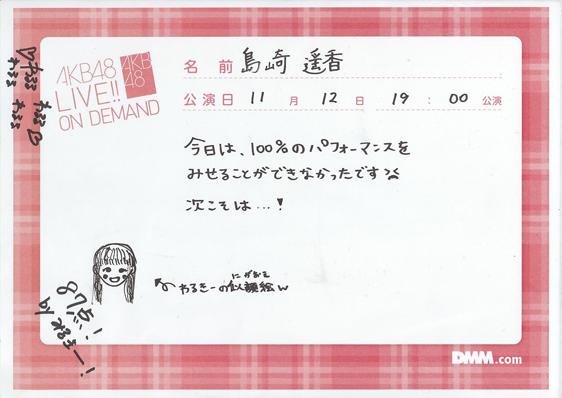 AKB48
LIVE!!
ON DEMAND
AKB
48
名 前 島崎 遥香
公演日 11 月 12 日 19 : 00 公演
今日は、100%のパフォーマンスを
みせることができなかったです
次こそは…!
にがおえ
の似顔絵w
87点!!
by
DMM.com